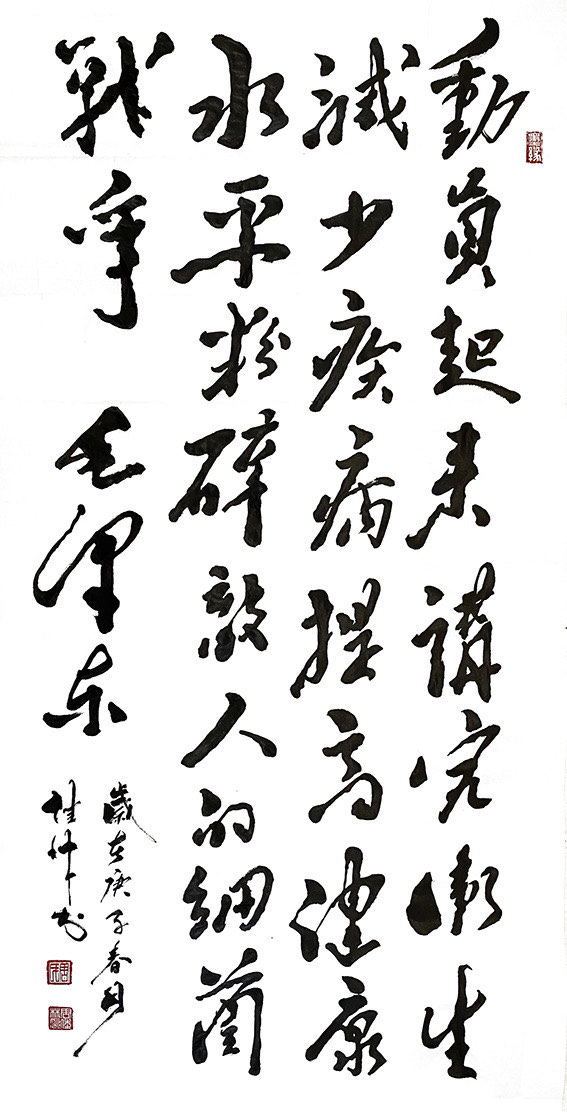 動員起来講究衛生
減少疾病提高健康
水平粉碎敵人的細菌
戰争 毛澤东
歲在庚子春月
仲 书